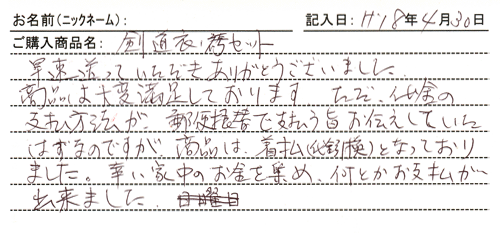 お名前(ニックネーム): 記入日: H18年4月30日
ご購入商品名: 剣道衣袴セット
早速送っていただきありがとうございました。
商品は大変満足しております ただ、代金の
支払方法が、郵便振替で支払う旨お伝えしていた
はずなのですが 商品は、着払(代引換)となっており
ました。幸い家中のお金を集め、何とかお支払が
出来ました。 日曜日